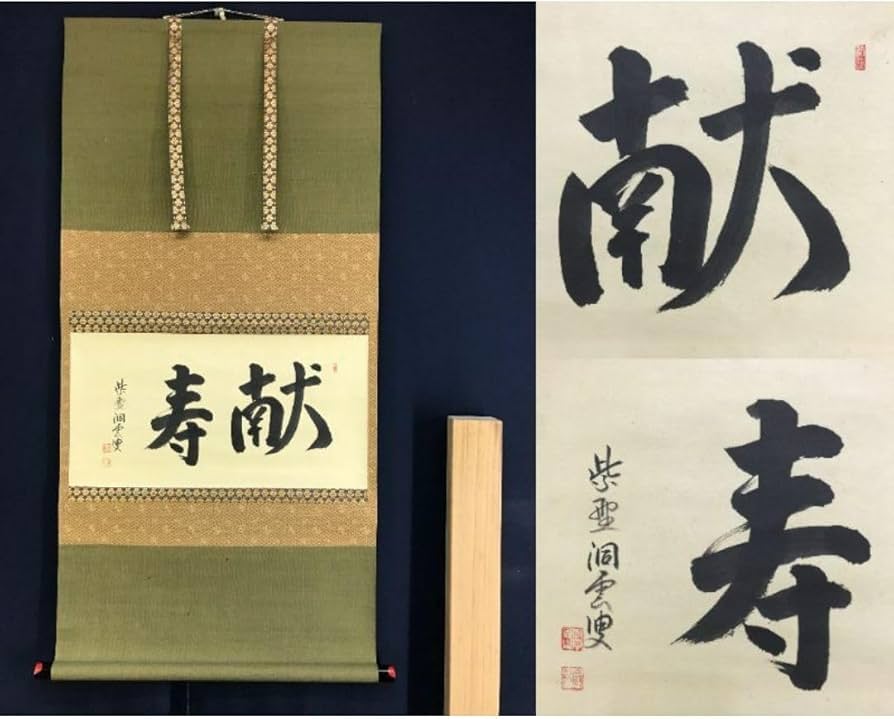 献寿
紫野洞雲叟
献
寿
紫野洞雲叟